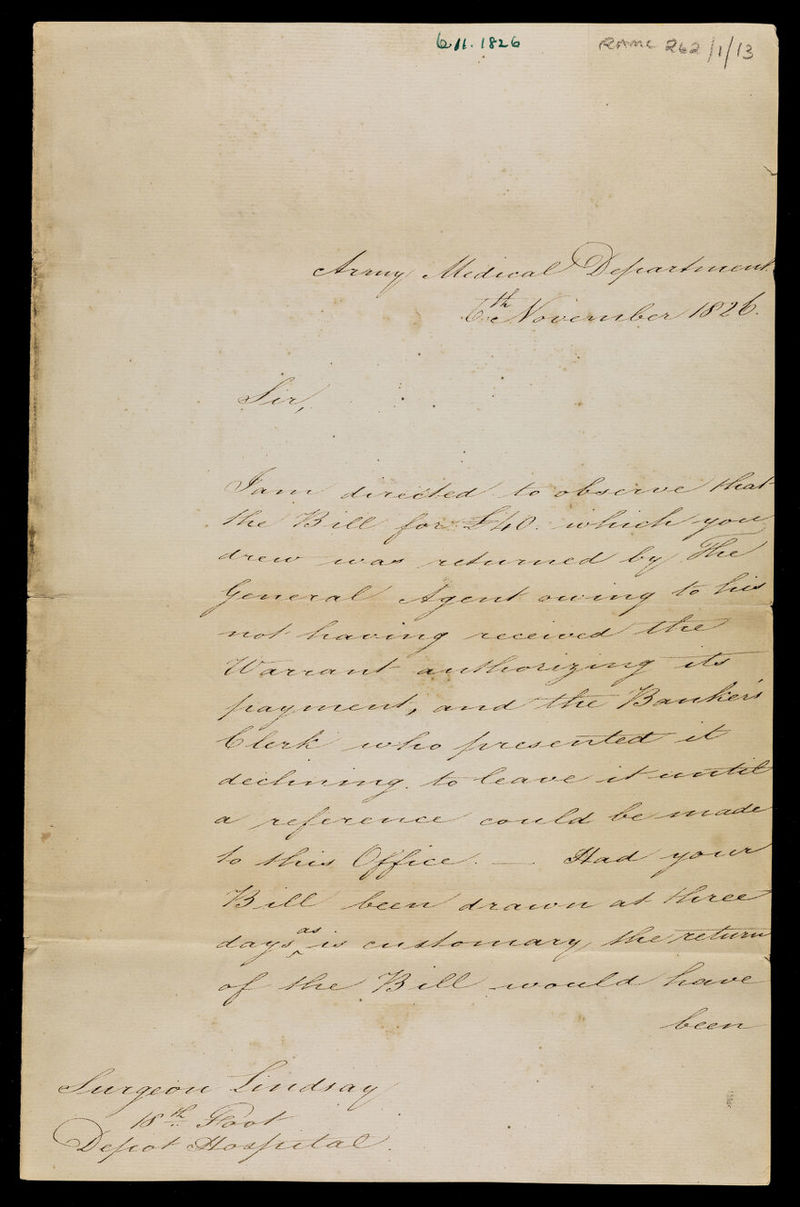 6.11.1826
RAMC 262/1/13
Army Medical Department
6th November 1826.
Sir,
I am directed to observe that
the Bill for £40. which you
drew was returned by The
General Agent owing to his
not having received the
Warrant authorizing its
payment, and the Banker's
Clerk who presented it
declining to leave it until
a reference could be made
to this Office. — Had your
Bill been drawn at three
days as is customary, the return
of the Bill would have
been
Surgeon Lindsay
18th Foot
Depot Hospital.